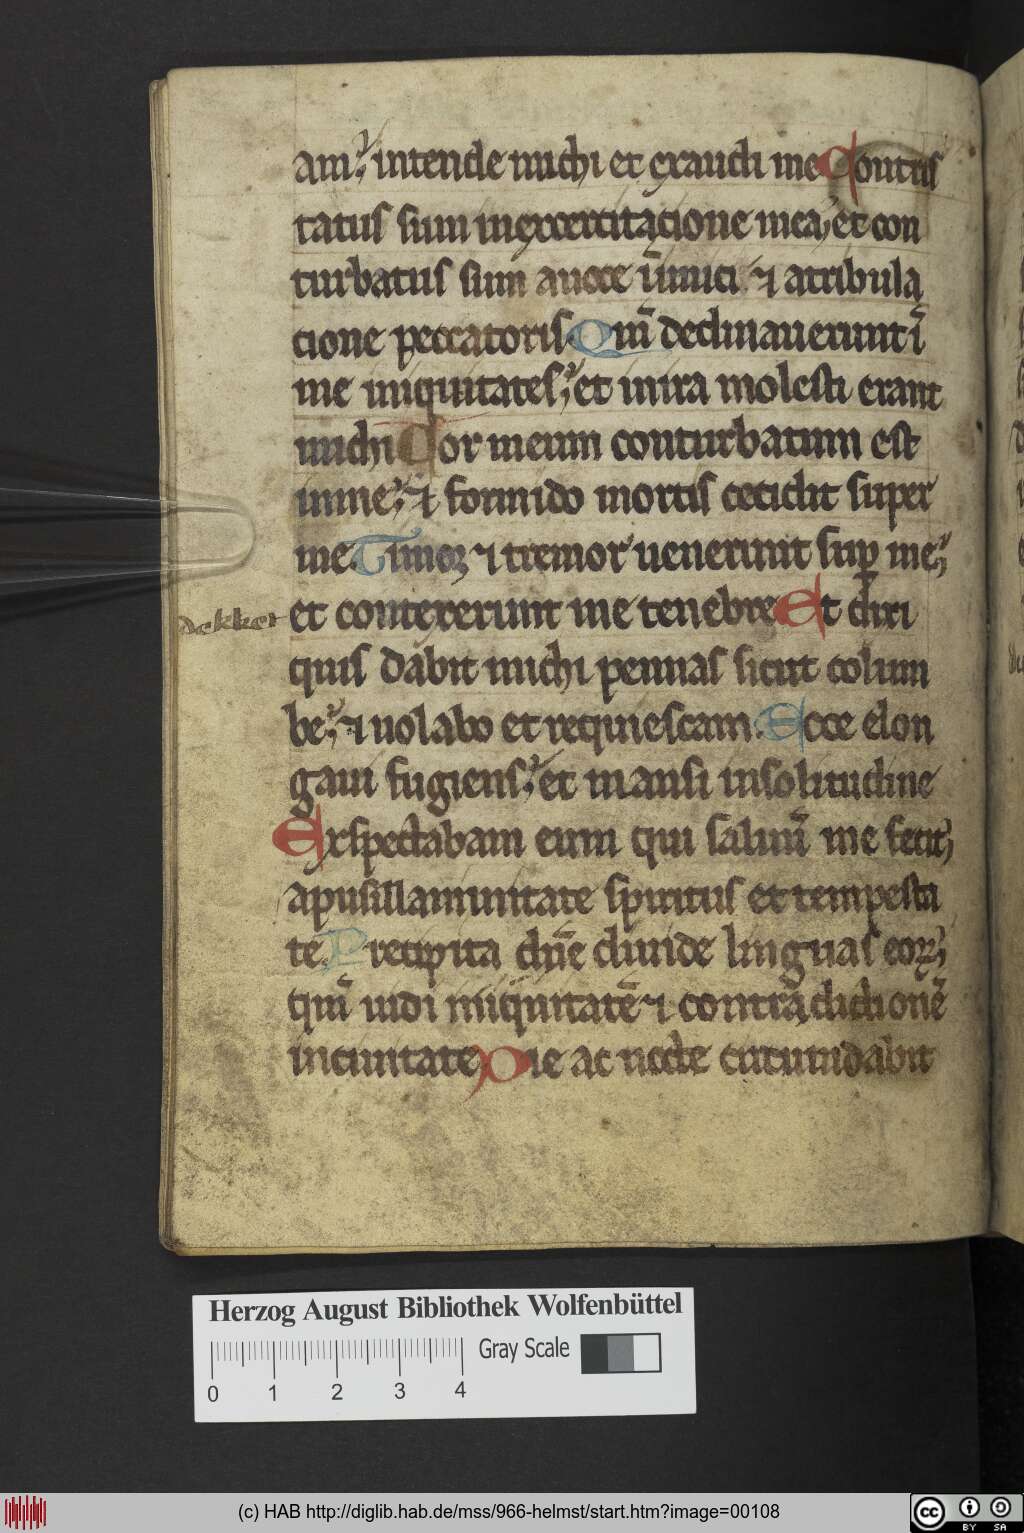 am; intende michi et exaudi me Contris
tatus sum inexcercitacione mea; et con
turbatus sum auoce īimici ⁊ atribula
cione peccatoris Qm̄ declinauerunt ī
me iniquitates; et inira molesti erant
michi Cor meum conturbatum est
inme; ⁊ formido mortis cecidit super
me Timor ⁊ tremor uenerunt sup me;
dekker et contexerunt me tenebre Et dixi
quis dabit michi pennas sicut colum
be; ⁊ uolabo et requiescam. Ecce elon
gaui fugiens; et mansi insolitudine
Exspectabam eum qui saluū me fecit;
apusillanimitate spiritus et tempesta
te. Precipita dn̄e diuide linguas eoꝝ;
qm̄ uidi iniquitatē ⁊ contradictionē
inciuitate Die ac nocte circumdabit
Herzog August Bibliothek Wolfenbüttel
Gray Scale
0 1 2 3 4
(c) HAB http://diglib.hab.de/mss/966-helmst/start.htm?image=00108
cc BY SA